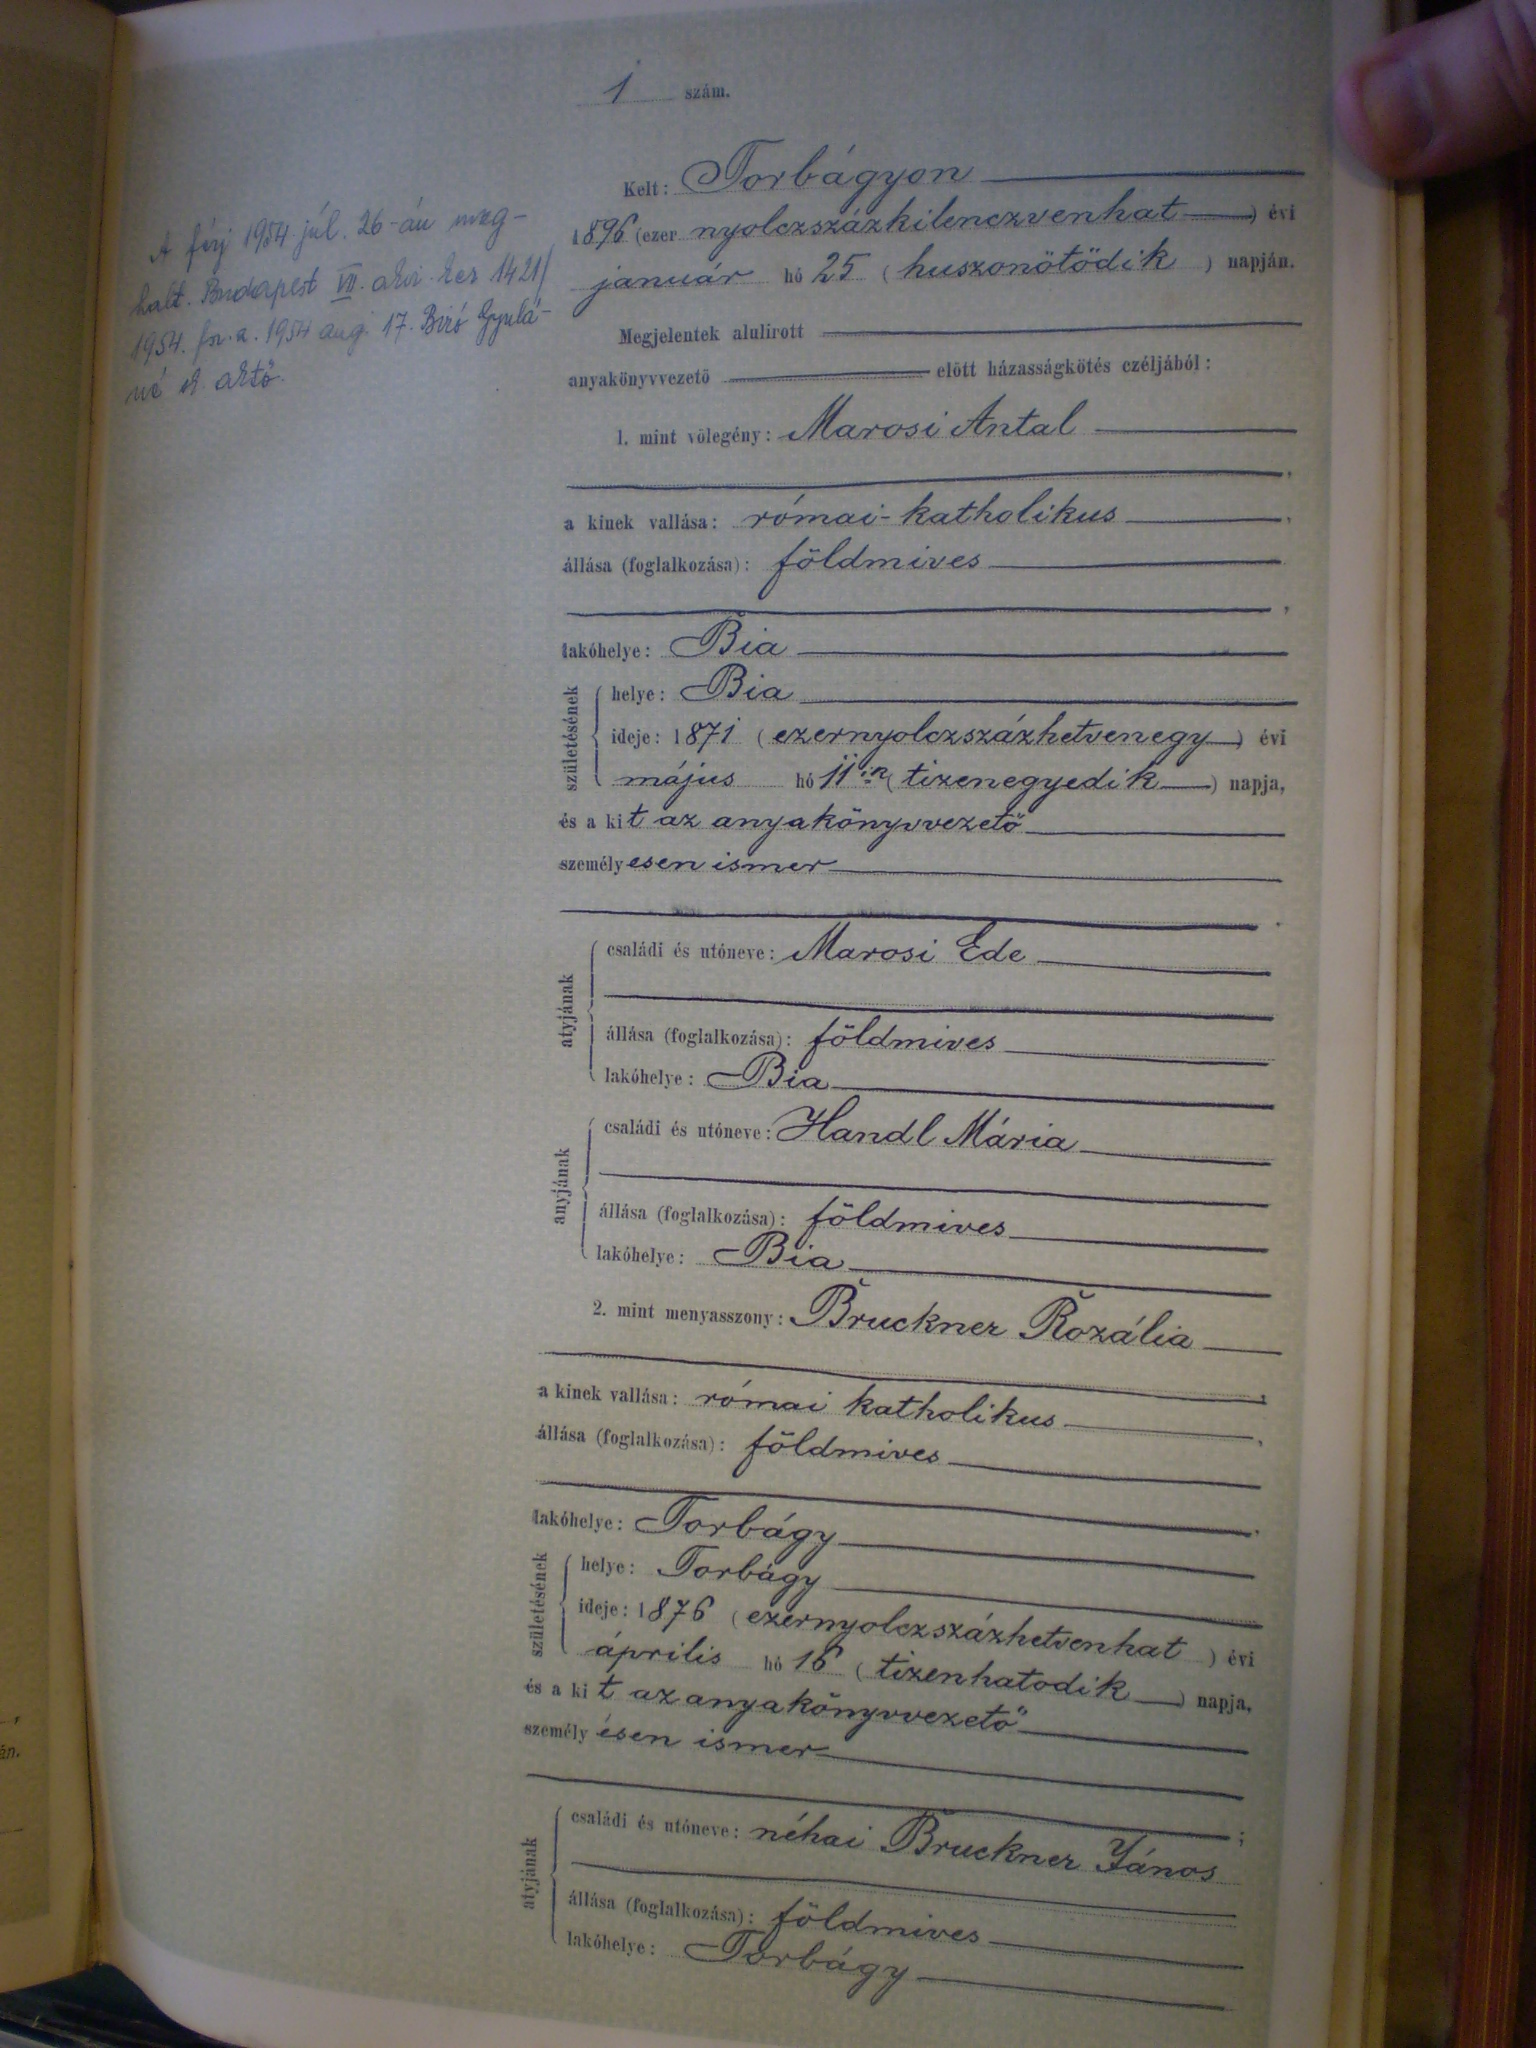 1 szám.
Kelt: Torbágyon
1896 (ezer nyolczszázkilenczvenhat) évi
január hó 25 (huszonötödik) napján.
A férj 1954 júl. 26-án meg-
halt. Budapest VII. akv. ker 1421/
1954. fn. a. 1954 aug. 17. Biró Gyulá-
né
Megjelentek alulirott
anyakönyvvezető előtt házasságkötés czéljából:
1. mint vőlegény: Marosi Antal
,
a kinek vallása: római-katholikus,
állása (foglalkozása): földmives
,
lakóhelye: Bia
születésének
helye: Bia
ideje: 1871 (ezernyolczszázhetvenegy) évi
május hó 11-én (tizenegyedik) napja,
és a kit az anyakönyvvezető
személyesen ismer
.
atyjának
családi és utóneve: Marosi Ede
állása (foglalkozása): földmives
lakóhelye: Bia
anyjának
családi és utóneve: Handl Mária
állása (foglalkozása): földmives
lakóhelye: Bia
2. mint menyasszony: Bruckner Rozália
,
a kinek vallása: római katholikus,
állása (foglalkozása): földmives
,
lakóhelye: Torbágy
születésének
helye: Torbágy
ideje: 1876 (ezernyolczszázhetvenhat) évi
április hó 16 (tizenhatodik) napja,
és a kit az anyakönyvvezető
személyesen ismer
;
atyjának
családi és utóneve: néhai Bruckner János
állása (foglalkozása): földmives
lakóhelye: Torbágy
án.